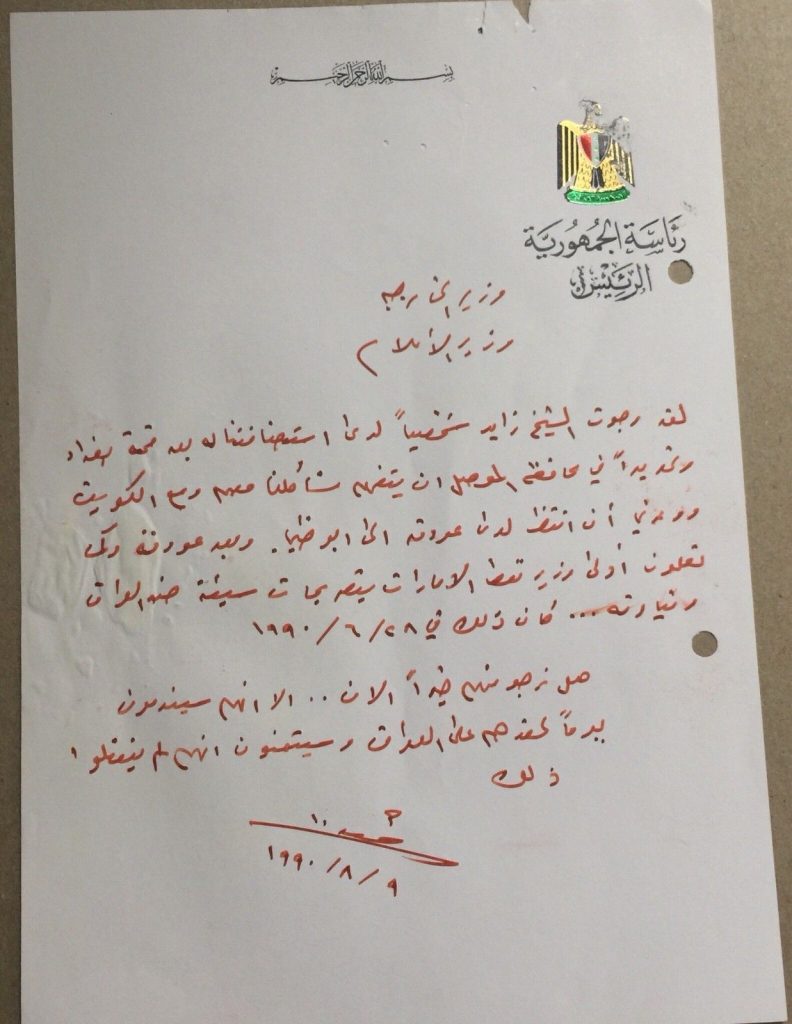 بسم الله الرحمن الرحيم
رئاسة الجمهورية
الرئيس
وزير الخارجيه
وزير الأعلام
لقد رجوت الشيخ زايد شخصياً لدى استضافتنا له بعد قمة بغداد
وتحديداً في محافظة الموصل ان يتفهم مشاكلنا معهم ومع الكويت
ووعدني أن انتظر لدى عودته الى ابو ظبي. وبعد عودته وكما
تعلمون أدلى وزير نفط الامارات بتصريحات سيئة ضد العراق
وقيادته... كان ذلك في ٢٨ / ٦ / ١٩٩٠
هل نرجو منهم خيراً الان .. الا انهم سيندمون
يوماً لحقدهم على العراق وسيتمنون انهم لم يفعلوا
ذلك
٩ / ٨ / ١٩٩٠